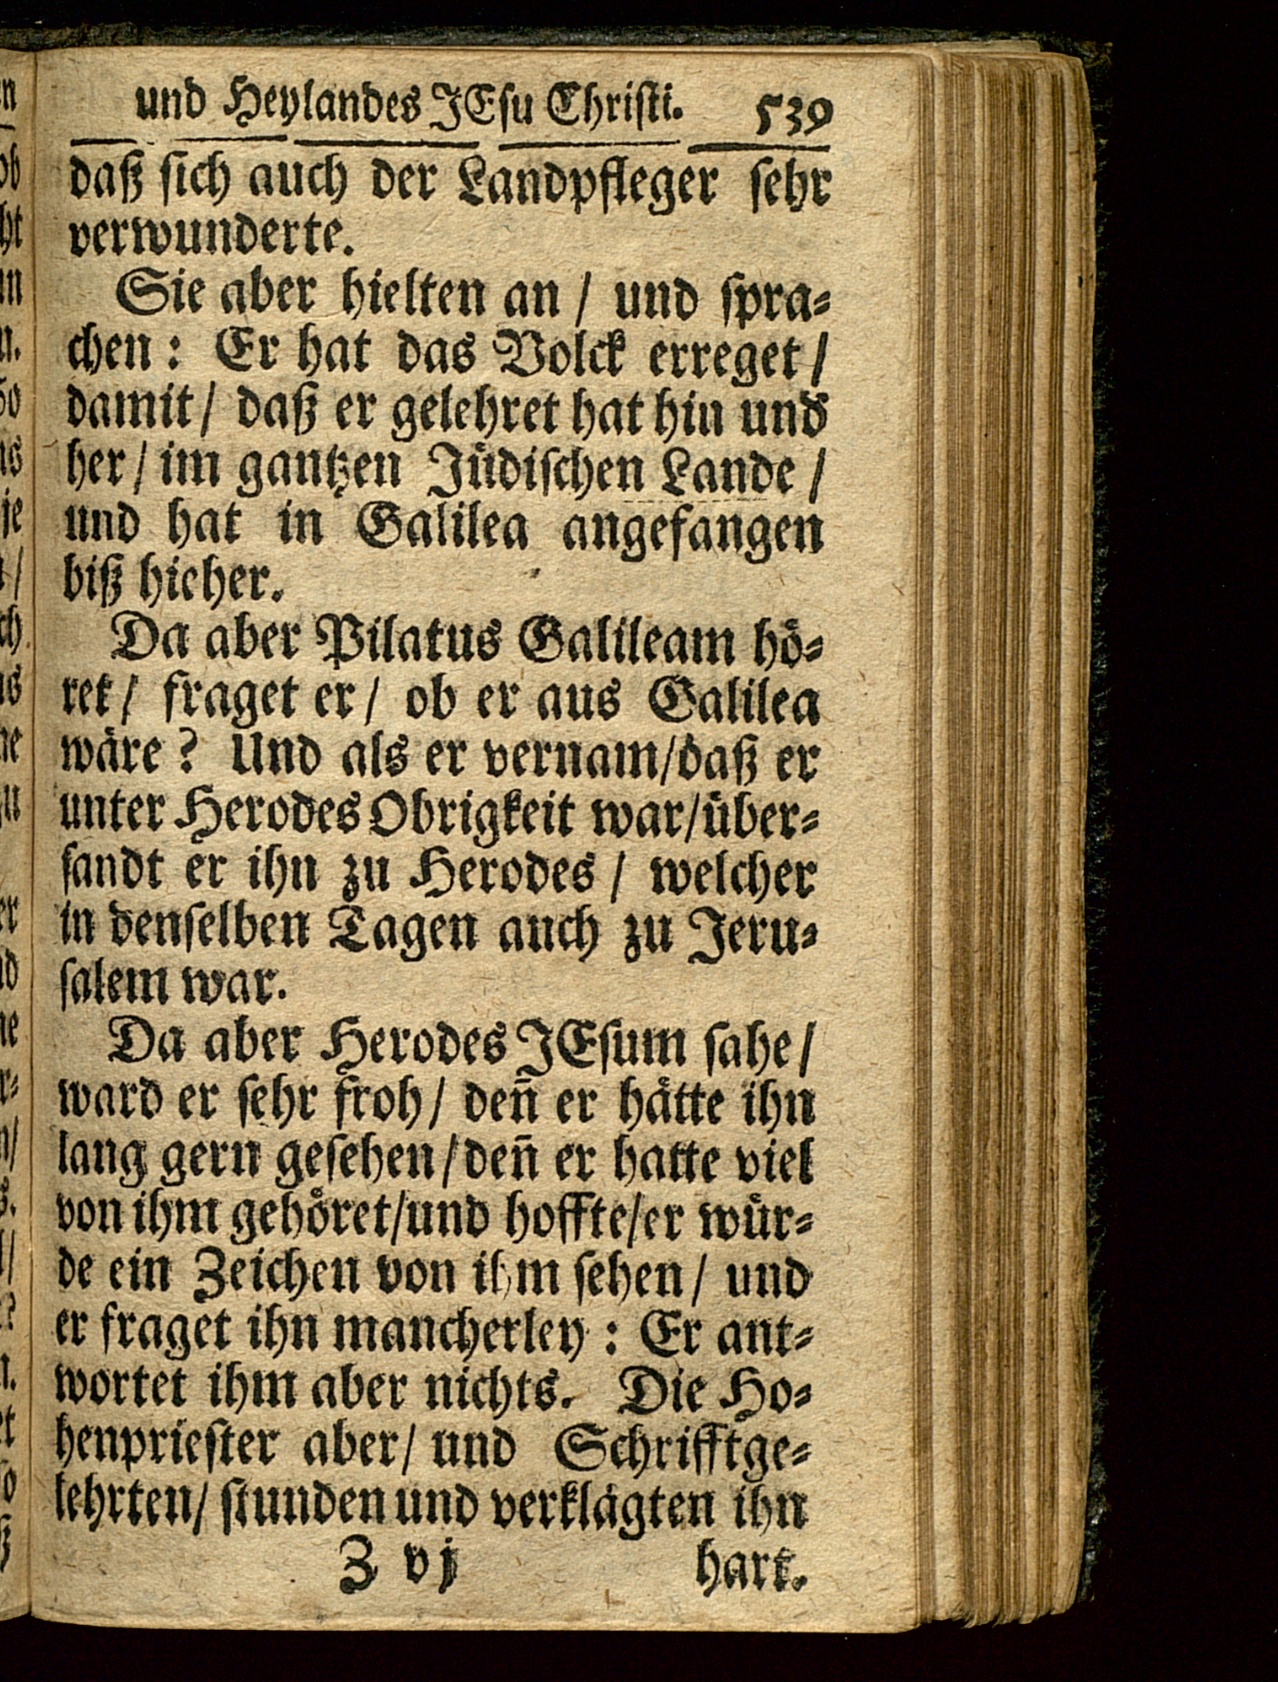 und Heylandes JEsu Christi. 539
daß sich auch der Landpfleger sehr
verwunderte.
Sie aber hielten an / und spra-
chen : Er hat das Volck erreget /
damit / daß er gelehret hat hin und
her / im gantzen Jüdischen Lande /
und hat in Galilea angefangen
biß hieher.
Da aber Pilatus Galileam hö-
ret / fraget er / ob er aus Galilea
wäre ? Und als er vernam / daß er
unter Herodes Obrigkeit war / über-
sandt er ihn zu Herodes / welcher
in denselben Tagen auch zu Jeru-
salem war.
Da aber Herodes JEsum sahe /
ward er sehr froh / deñ er hätte ihn
lang gern gesehen / deñ er hatte viel
von ihm gehöret / und hoffte / er wür-
de ein Zeichen von ihm sehen / und
er fraget ihn mancherley : Er ant-
wortet ihm aber nichts. Die Ho-
henpriester aber / und Schrifftge-
lehrten / stunden und verklagten ihn
Z vj hart.